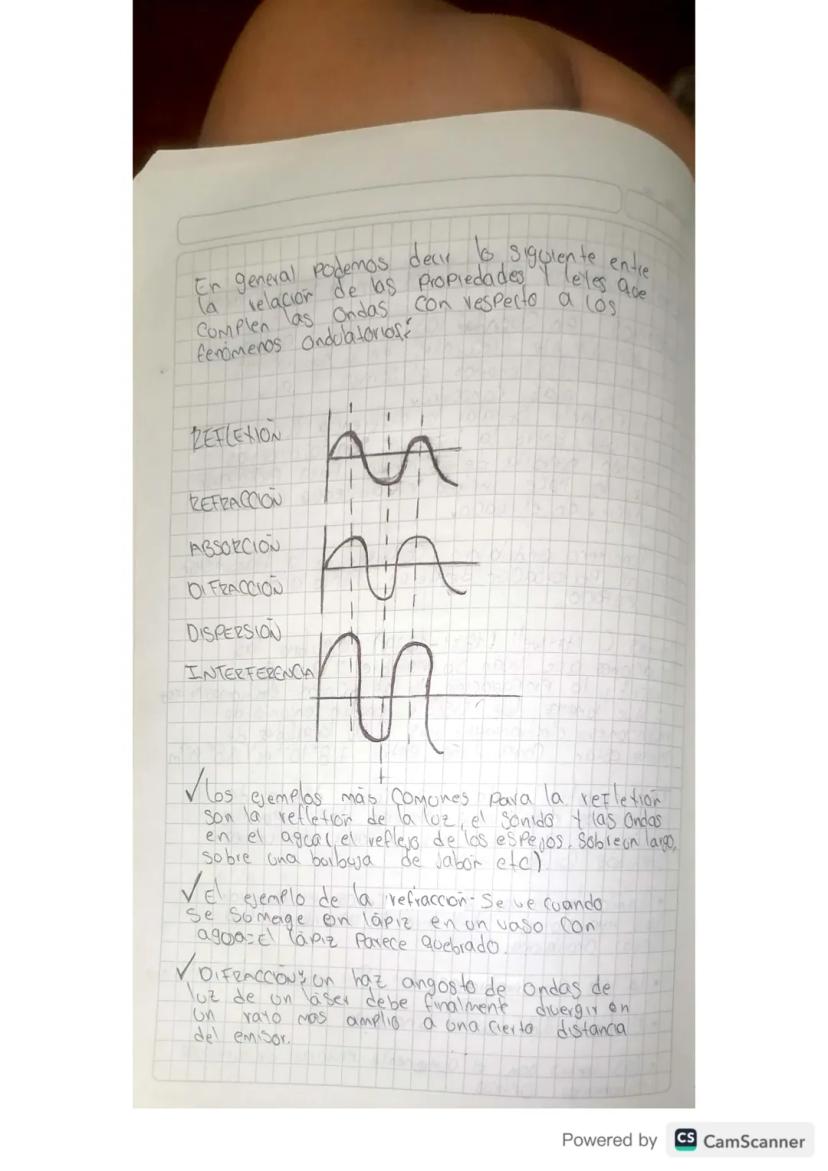 En general Podemos decir lo siguiente entre
la relación de las Propiedades y leyes que
cumplen las ondas con respecto a los
fenómenos ondulatorios:
REFLEXIÓN
REFRACCIÓN
ABSORCIÓN
DIFRACCIÓN
DISPERSIÓN
INTERFERENCIA
✓ los ejemplos más comunes para la reflexión
son la reflexión de la luz, el sonido y las ondas
en el agua(el reflejo de los espejos. Sobre un lago,
sobre una burbuja de Jabón etc)
✓ El ejemplo de la refracción. Se ve cuando
se somerge en lápiz en un vaso con
agua=El lápiz Parece quebrado.
✓ DIFRACCIÓN: un haz angosto de ondas de
luz de un láser debe finalmente divergir en
un rayo mas amplio a una cierto distancia
del emisor.
Powered by CS CamScanner